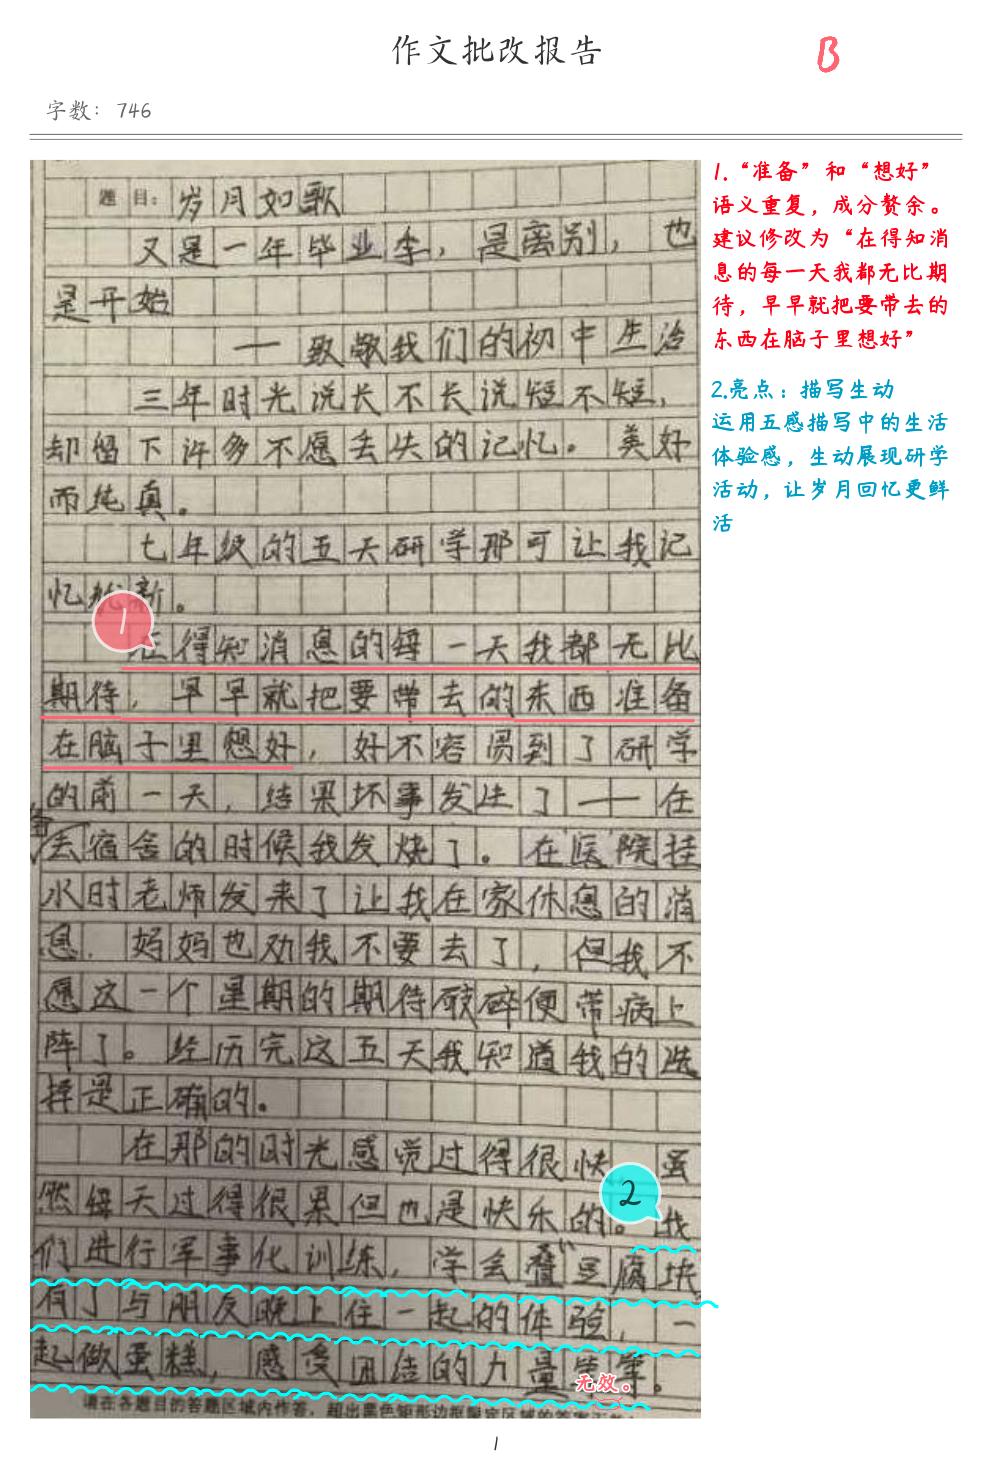 作文批改报告
B
字数：746
题 目：岁月如歌
又是一年毕业季，是离别，也
是开始
一 致敬我们的初中生活
三年时光说长不长说短不短，
却留下许多不愿丢失的记忆。美好
而纯真。
七年级的五天研学那可让我记
忆犹新。
1
在得知消息的每一天我都无比
期待，早早就把要带去的东西准备
在脑子里想好，好不容易到了研学
的前一天，结果坏事发生了——在
去宿舍的时候我发烧了。在医院挂
水时老师发来了让我在家休息的消
息．妈妈也劝我不要去了，但我不
愿这一个星期的期待破碎便带病上
阵了。经历完这五天我知道我的选
择是正确的。
在那的时光感觉过得很快．虽
然每天过得很累但也是快乐的。我
2
们进行军事化训练，学会叠“豆腐块
有了与朋友晚上住一起的体验，一
起做蛋糕，感受团结的力量等等。
无效。
请在各题目的答题区域内作答，超出黑色矩形边框限定区域的答案无效
1."准备"和"想好"
语义重复，成分赘余。
建议修改为"在得知消
息的每一天我都无比期
待，早早就把要带去的
东西在脑子里想好"
2.亮点：描写生动
运用五感描写中的生活
体验感，生动展现研学
活动，让岁月回忆更鲜
活
1